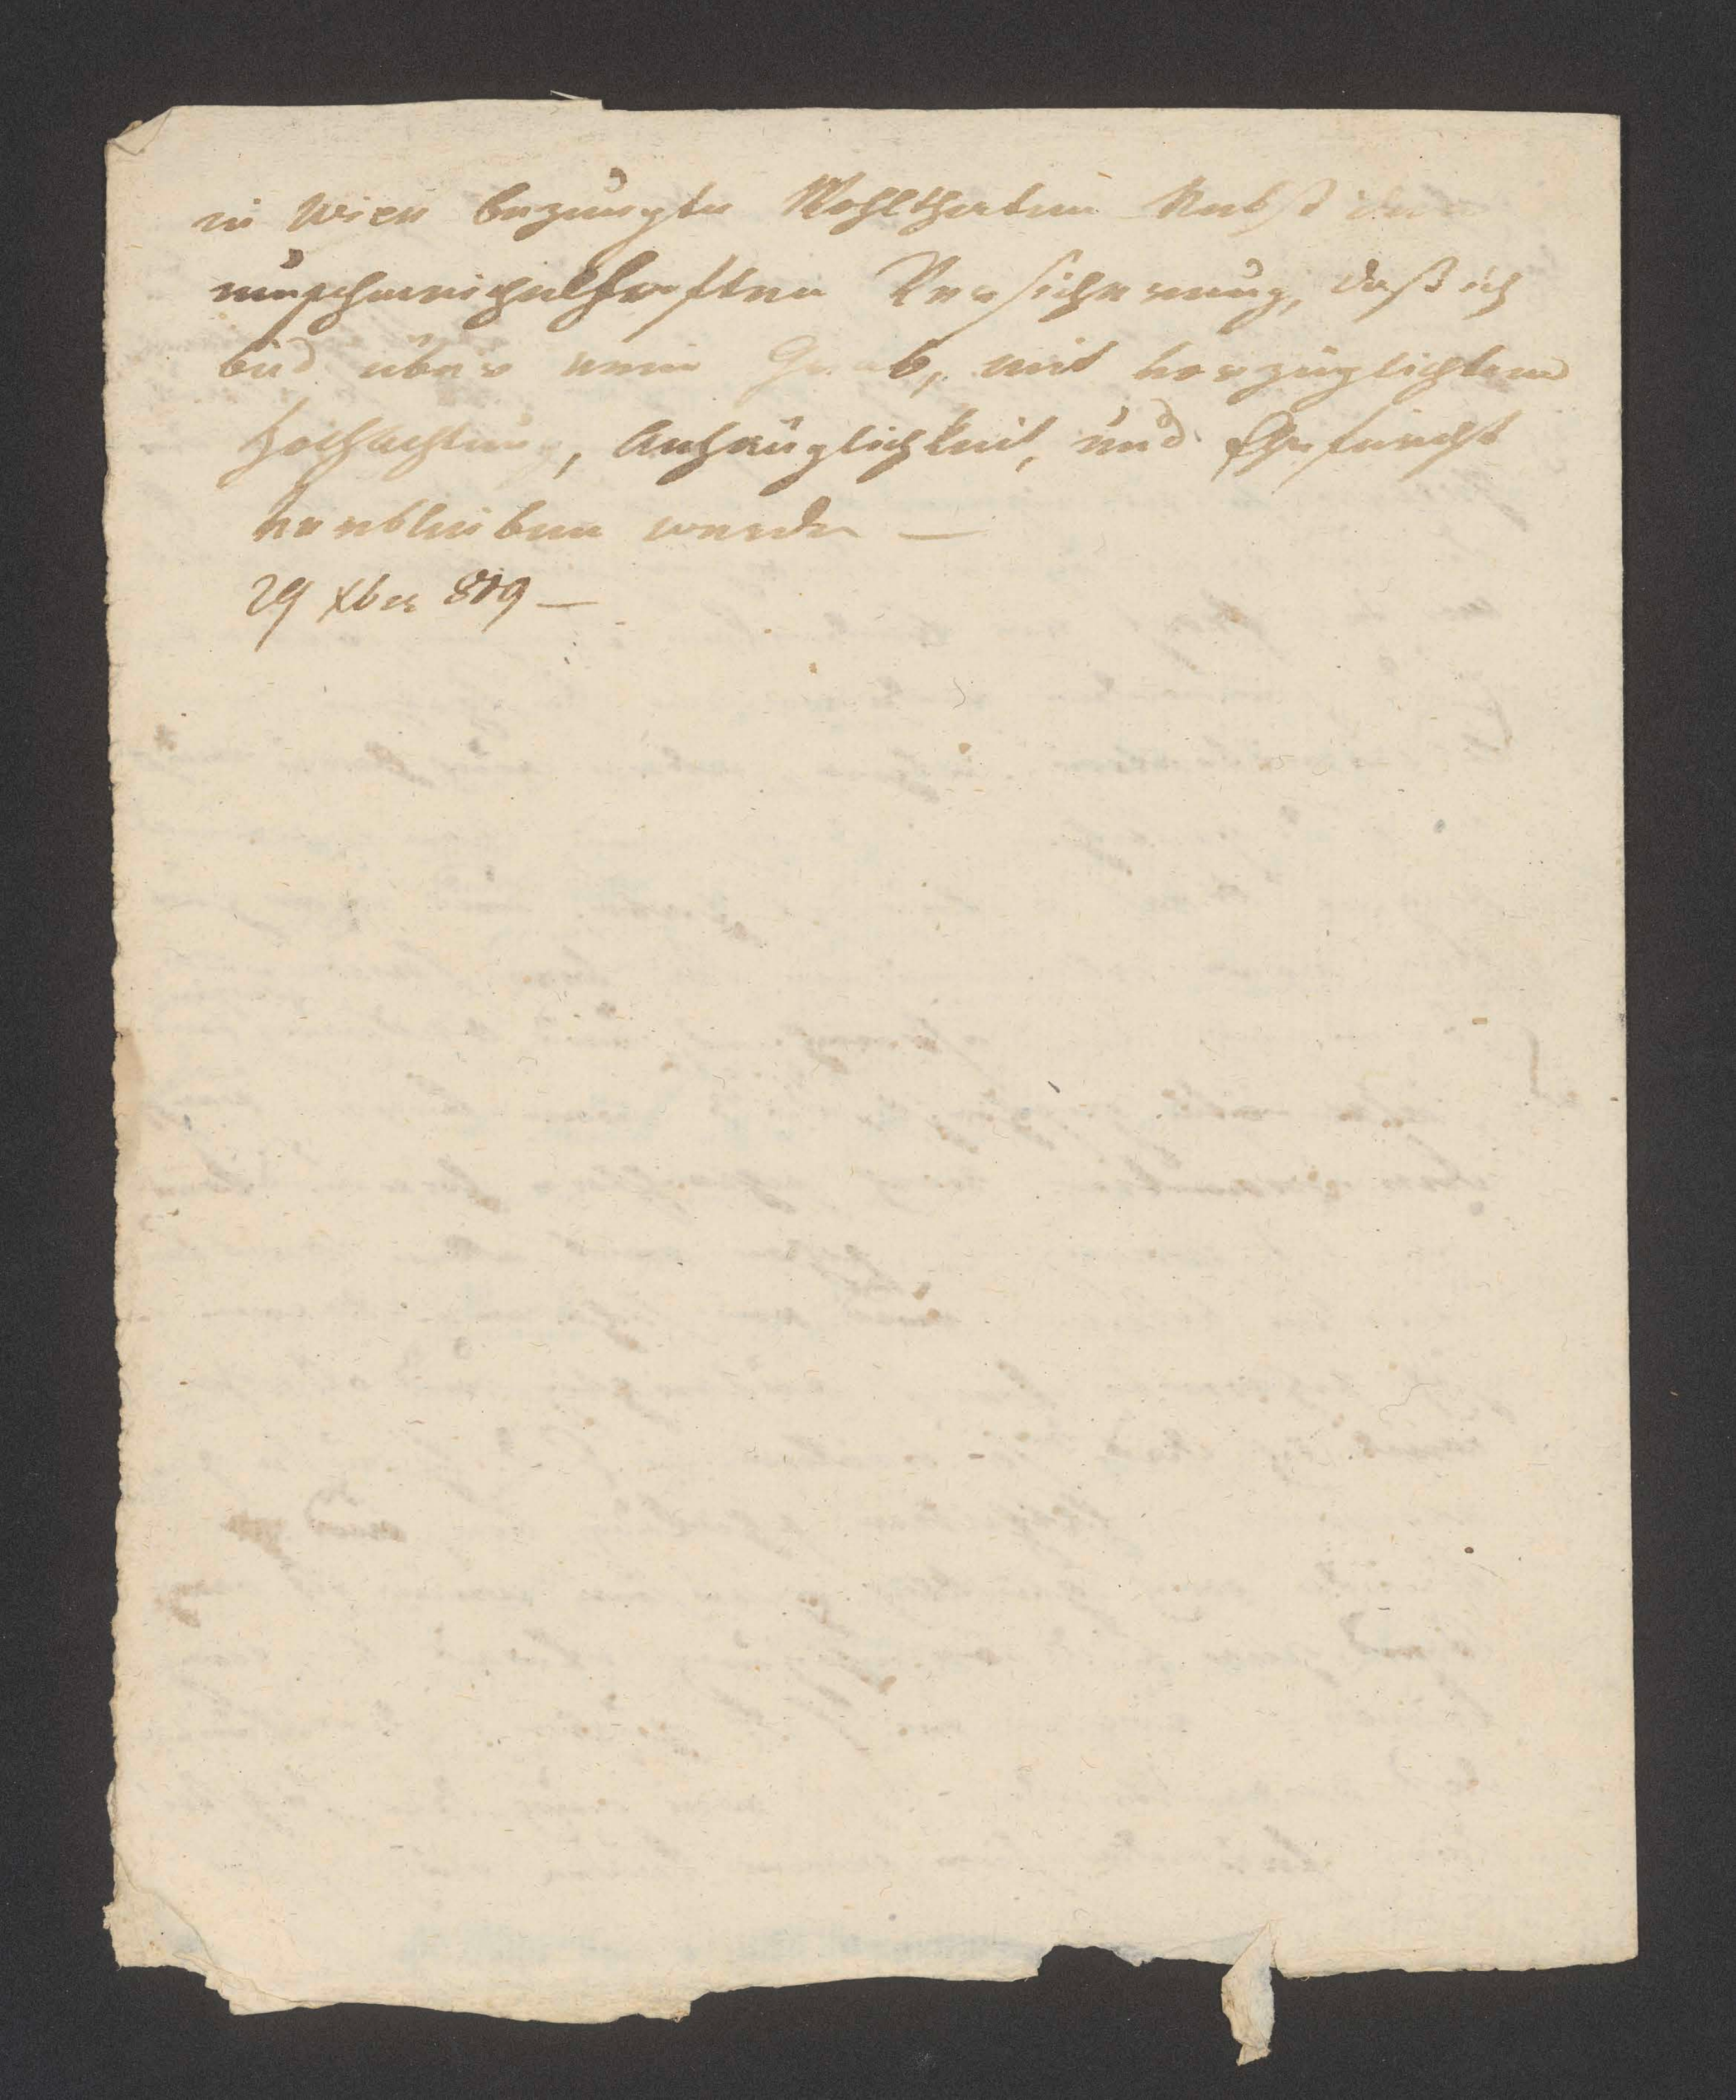 in Wien bezeugte Wohlthaten Nebst der
unschmeichelhaften Versicherung, daß ich
bis über mein Grab, mit vorzüglichster
Hochachtung, Anhänglichkeit, und Ehrfurcht
verbleiben werde —
29 Xber 819 —